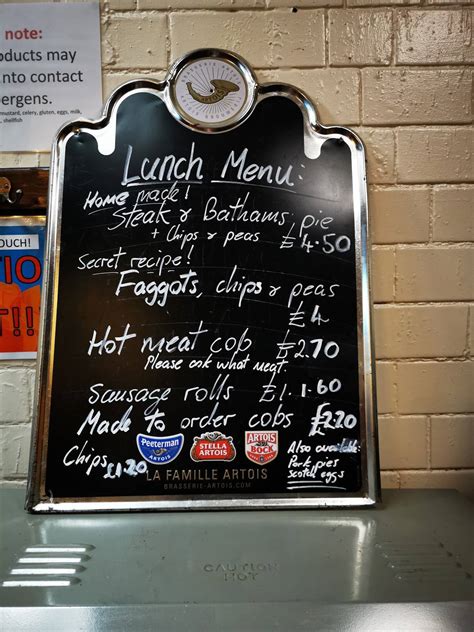 note:
oducts may
nto contact
ergens.
mustard, celery, gluten, eggs, milk,
shellfish
OUCH!
Lunch Menu:
Home made!
Steak & Bathams pie
+ Chips & peas £4.50
Secret recipe!
Faggots, chips & peas
£4
Hot meat cob £2.70
Please ask what meat.
Sausage rolls £1.60
Made to order cobs £2.20
Chips £1.20
Peeterman
ARTOIS
STELLA
ARTOIS
ARTOIS
BOCK
Also available:
Pork pies
Scotch eggs
LA FAMILLE ARTOIS
BRASSERIE-ARTOIS.COM
CAUTION
HOT